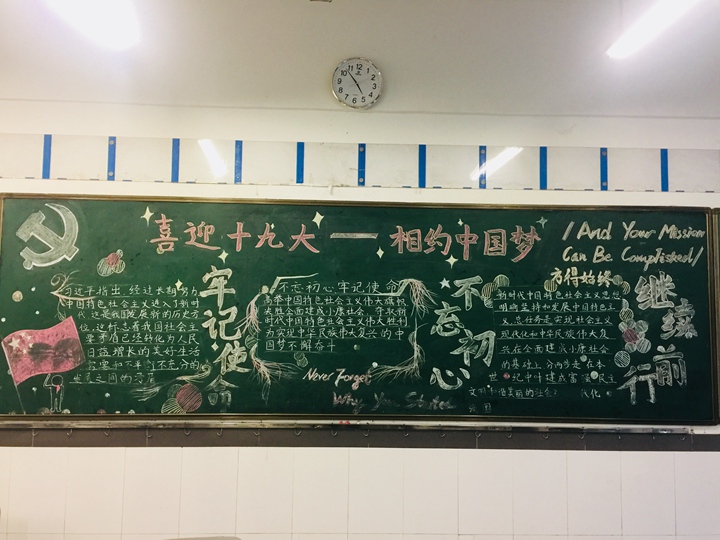 喜迎十九大——相约中国梦
/And Your Mission
Can Be Complished/
习近平指出,经过长期努力
中国特色社会主义进入了新时
代,这是我国发展新的历史方
位,这标志着我国社会主
要矛盾已经转化为人民
日益增长的美好生活
需要和不平衡不充分的
发展之间的矛盾
牢记使命
不忘初心牢记使命
高举中国特色社会主义伟大旗帜
决胜全面建成小康社会,夺取新
时代中国特色社会主义伟大胜利
为实现中华民族伟大复兴的中
国梦不懈奋斗
Never Forget
Why You Started
不忘初心
方得始终
新时代中国特色社会主义思想
明确坚持和发展中国特色主
义,总任务是实现社会主义
现代化和中华民族伟大复
兴,在全面建成小康社会
的基础上,分两步走在本
世纪中叶建成富强民主
文明和谐美丽的社会
代化
继续前行